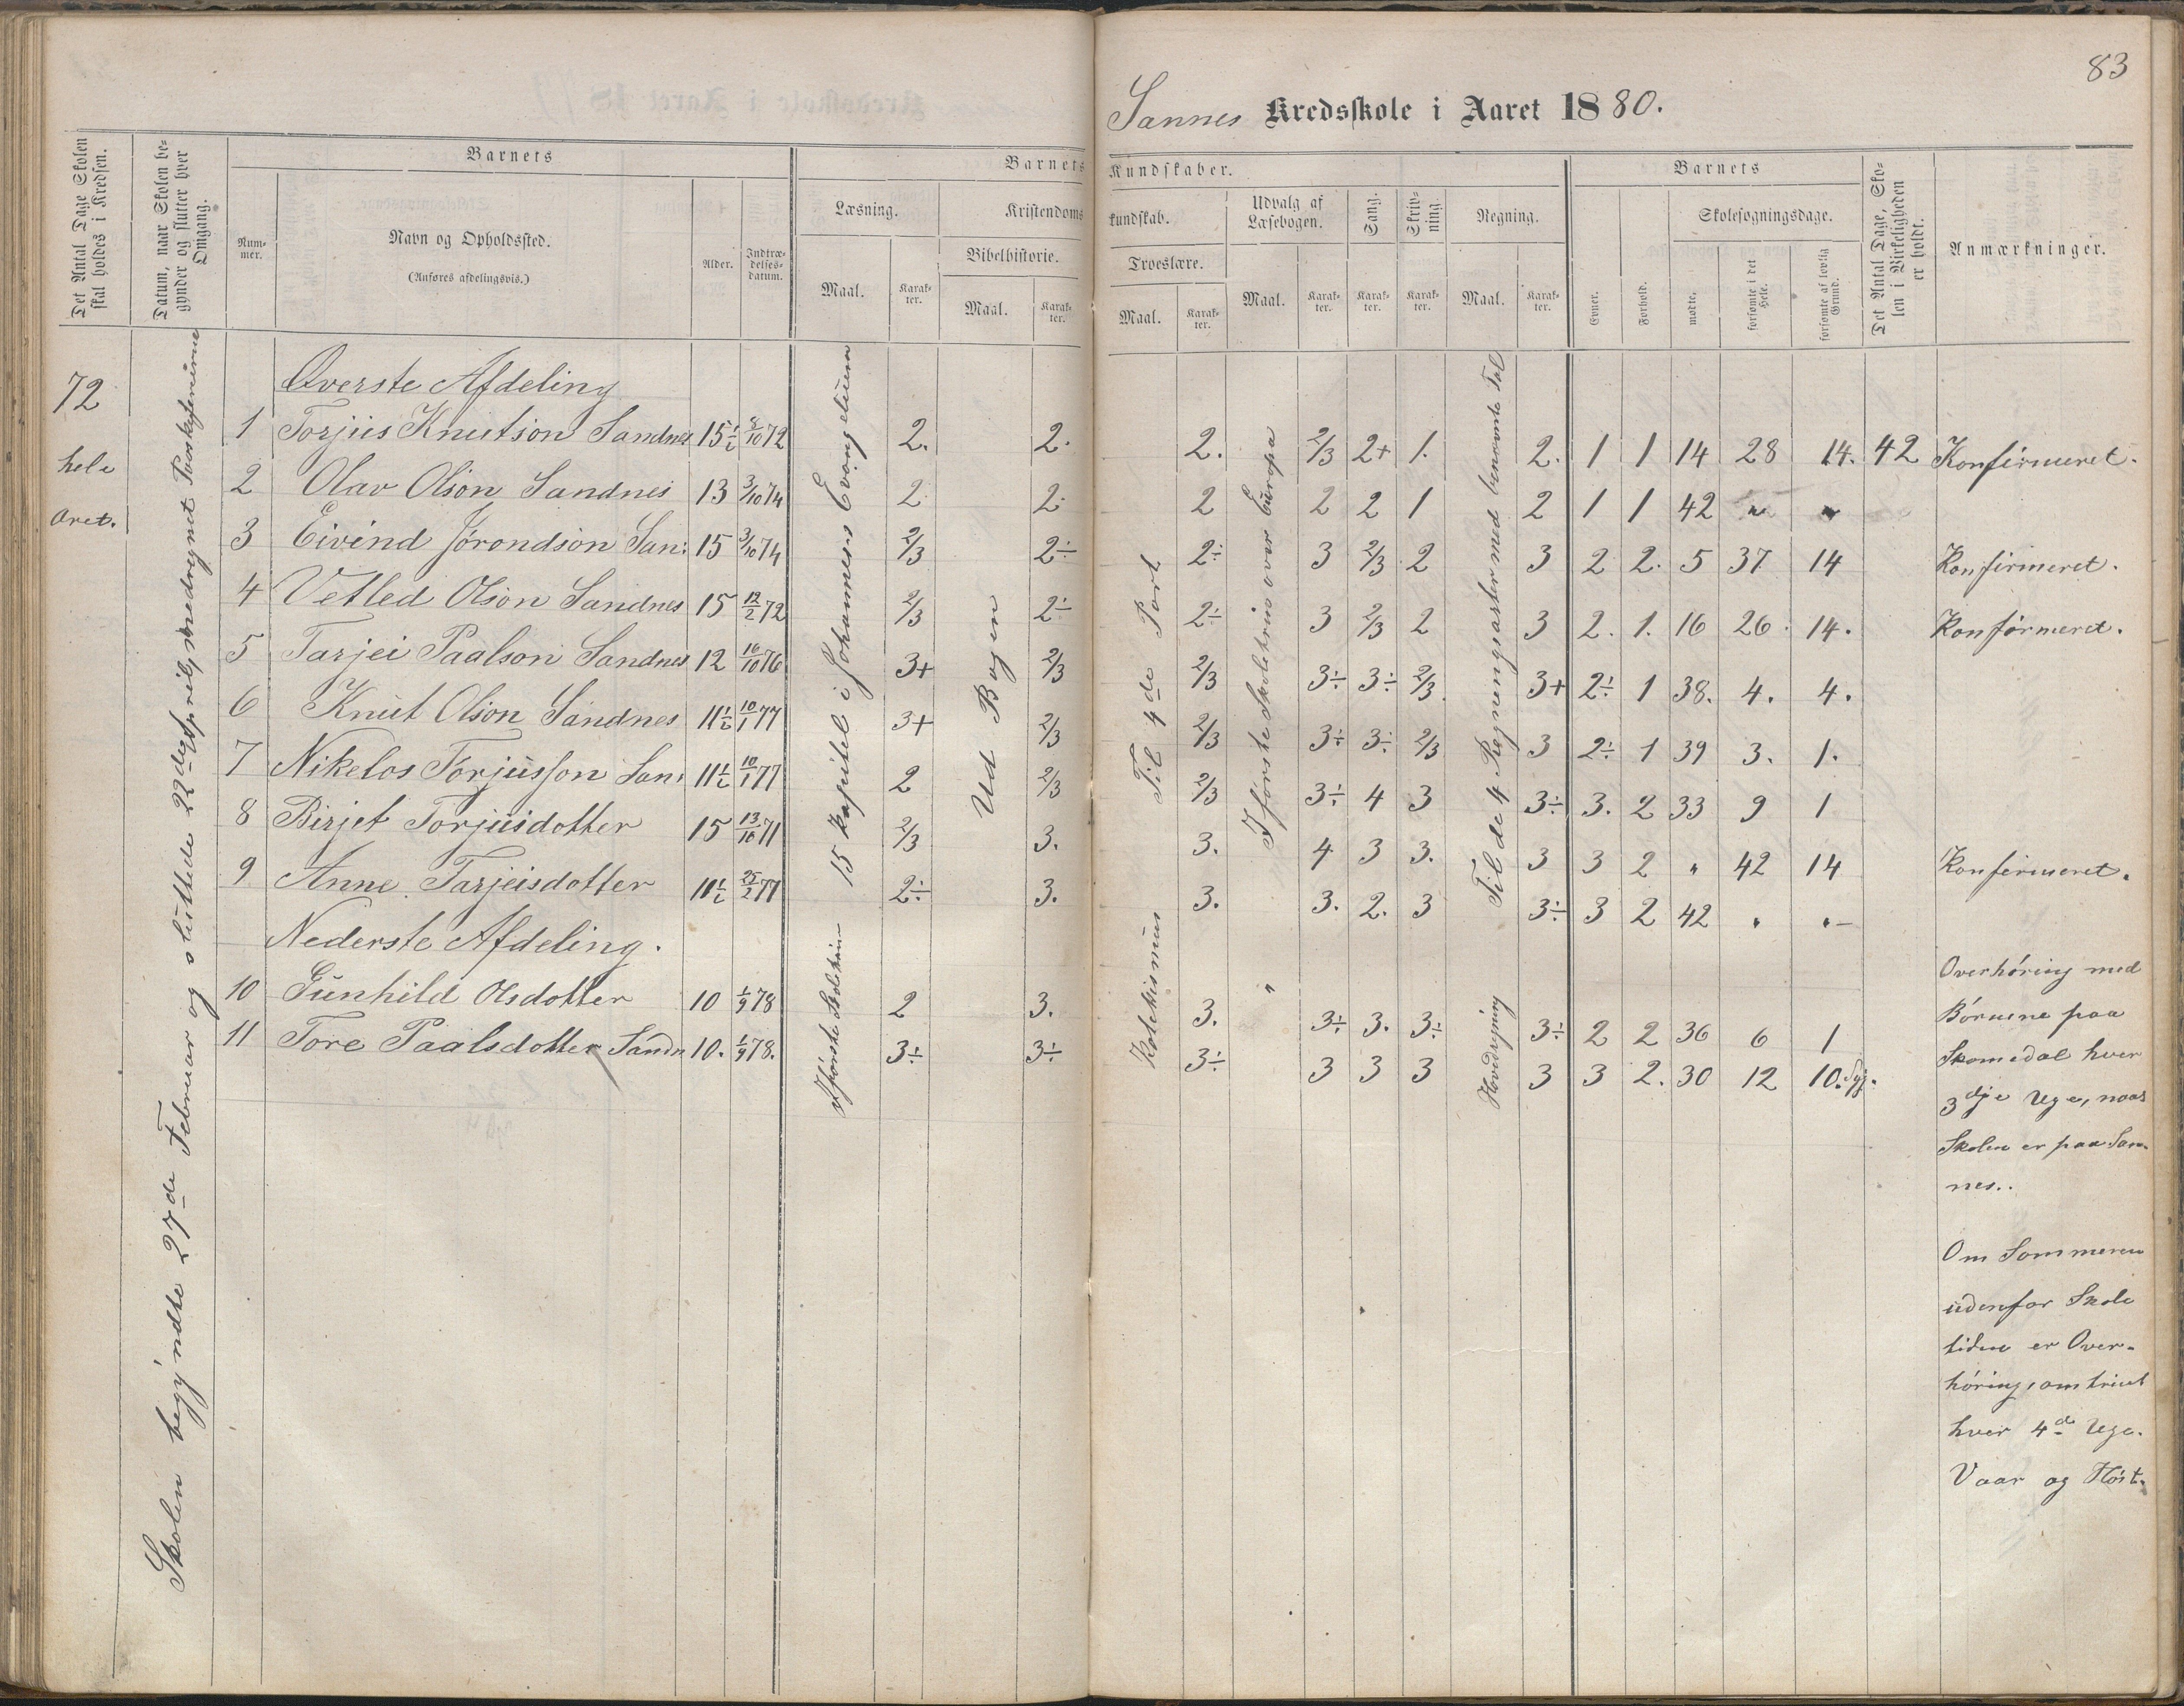 83
Sannes Kredsskole i Aaret 1880.
Det Antal Dage Skolen skal holdes i Kredsen.
Datum, naar Skolen begynder og slutter hver Omgang.
Barnets
Nummer.
Navn og Opholdssted.
(Anføres afdelingsvis.)
Alder.
Indtrædelsesdatum.
Barnets Kundskaber.
Læsning.
Maal.
Karakter.
Kristendomskundskab.
Bibelhistorie.
Maal.
Karakter.
Troeslære.
Maal.
Karakter.
Udvalg af Læsebogen.
Maal.
Karakter.
Sang.
Karakter.
Skrivning.
Karakter.
Regning.
Maal.
Karakter.
Barnets
Evner.
Forhold.
Skolesøgningsdage.
mødte.
forsømte i det Hele.
forsømte af lovlig Grund.
Det Antal Dage, Skolen i Virkeligheden er holdt.
Anmærkninger.
72
hele
Aret.
Skolen begyndte 27de Februar og sluttede 22de April, medregnet Paaskeferierne
15 Kapitel i Johannes Evangelium
Ud Bogen
Til 4de Part
I første Skoletrin over Europa
Til de 4 Regningsarter med benævnte Tal
Øverste Afdeling
1 Torjus Knutson Sandnes 15½ 8/10 72 2. 2. 2. 2/3 2+ 1. 2. 1 1 14 28 14. 42 Konfirmeret.
2 Olav Olson Sandnes 13 3/10 74 2 2 2 2 2 1 2 1 1 42 " "
3 Eivind Jørondson San: 15 3/10 74 2/3 2÷ 2÷ 3 2/3 2 3 2 2. 5 37 14 Konfirmeret.
4 Vetled Olson Sandnes 15 12/2 72 2/3 2÷ 2÷ 3 2/3 2 3 2. 1. 16 26. 14. Konfirmeret.
5 Tarjei Paalson Sandnes 12 16/10 76 3+ 2/3 2/3 3÷ 3÷ 2/3 3+ 2÷ 1 38. 4. 4.
6 Knut Olson Sandnes 11½ 10/1 77 3+ 2/3 2/3 3÷ 3÷ 2/3 3 2÷ 1 39 3. 1.
7 Nikelos Torjusson San: 11½ 10/1 77 2 2/3 2/3 3÷ 4 3 3÷ 3. 2 33 9 1
8 Birjet Torjusdotter 15 13/10 71 2/3 3. 3. 4 3 3. 3 3 2 " 42 14 Konfirmeret.
9 Anne Tarjeisdotter 11½ 25/2 77 2÷ 3. 3. 3. 2. 3 3÷ 3 2 42 " "
Nederste Afdeling.
I første Skoletrin
Katekismus
"
Hovedregning
10 Gunhild Olsdotter 10 1/9 78 2 3. 3. 3÷ 3. 3÷ 3÷ 2 2 36 6 1
11 Tore Paalsdotter Sandn 10. 1/9 78. 3÷ 3÷ 3÷ 3 3 3 3 3 2. 30 12 10. Syg.
Overhøring med
Børnene paa
Skomedal hver
3dje Uge, naar
Skolen er paa San-
nes.
Om Sommeren
udenfor Skole
tiden er Over-
høring, omtrent
hver 4de Uge.
Vaar og Høst.